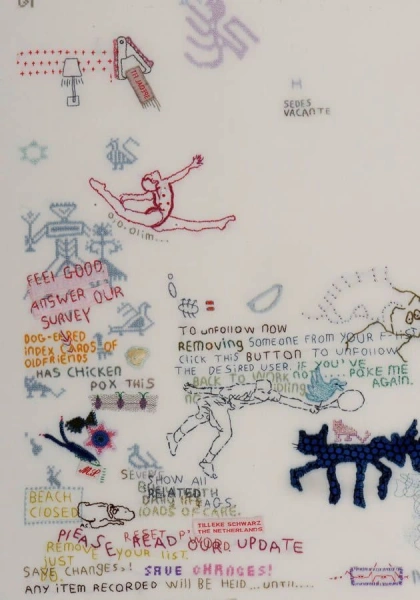 SEDES
VACANTE
O,O-Olim...
FEEL GOOD.
ANSWER OUR
SURVEY
DOG-EARED
INDEX CARDS OF
OLD FRIENDS
HAS CHICKEN
POX THIS
TO UNFOLLOW NOW
REMOVING SOMEONE FROM YOUR
CLICK THIS BUTTON TO UNFOLLOW
THE DESIRED USER. IF YOU'VE
BACK TO WORK
POKE ME
AGAIN.
SHOW ALL
RELATED
LOADS OF CARE.
BEACH
CLOSED
TILLEKE SCHWARZ
THE NETHERLANDS
PLEASE READ OUR UPDATE
RESET
REMOVE YOUR LIST.
JUST
SAVE CHANGES! SAVE CHANGES!
ANY ITEM RECORDED WILL BE HELD...UNTIL.....